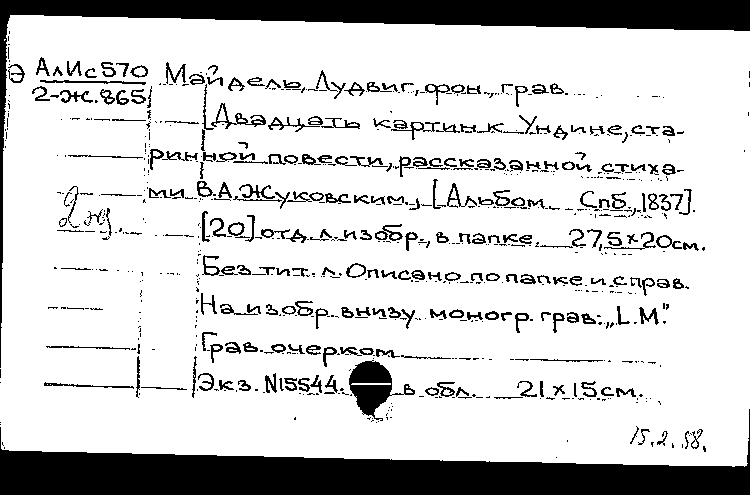 Э АлИс570 Майдель, Лудвиг, фон, грав.
2-Ж.865
[Двадцать картин к Ундине, ста-
ринной повести, рассказанной стиха-
ми В.А.Жуковским., [Альбом. Спб, 1837].
2 экз.
[20] отд. л. изобр., в папке. 27,5×20см.
Без тит. л. Описано по папке и справ.
На изобр. внизу моногр. грав: „L.M".
Грав. очерком
Экз. N15544. в обл. 21×15см.
15.2.58.